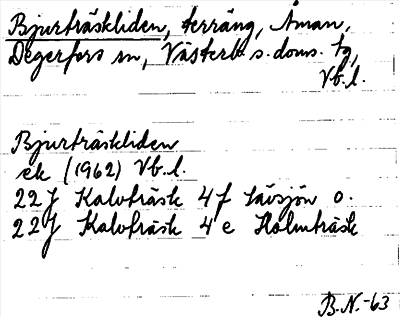 Bjurträskliden, terräng, Åman,
Degerfors sn, Västerb. s. doms. tg,
Vb.l.
Bjurträskliden
ek (1962) Vb.l.
22J Kalvträsk 4f Lävsjön o.
22J Kalvträsk 4e Holmträsk
B.N.-63